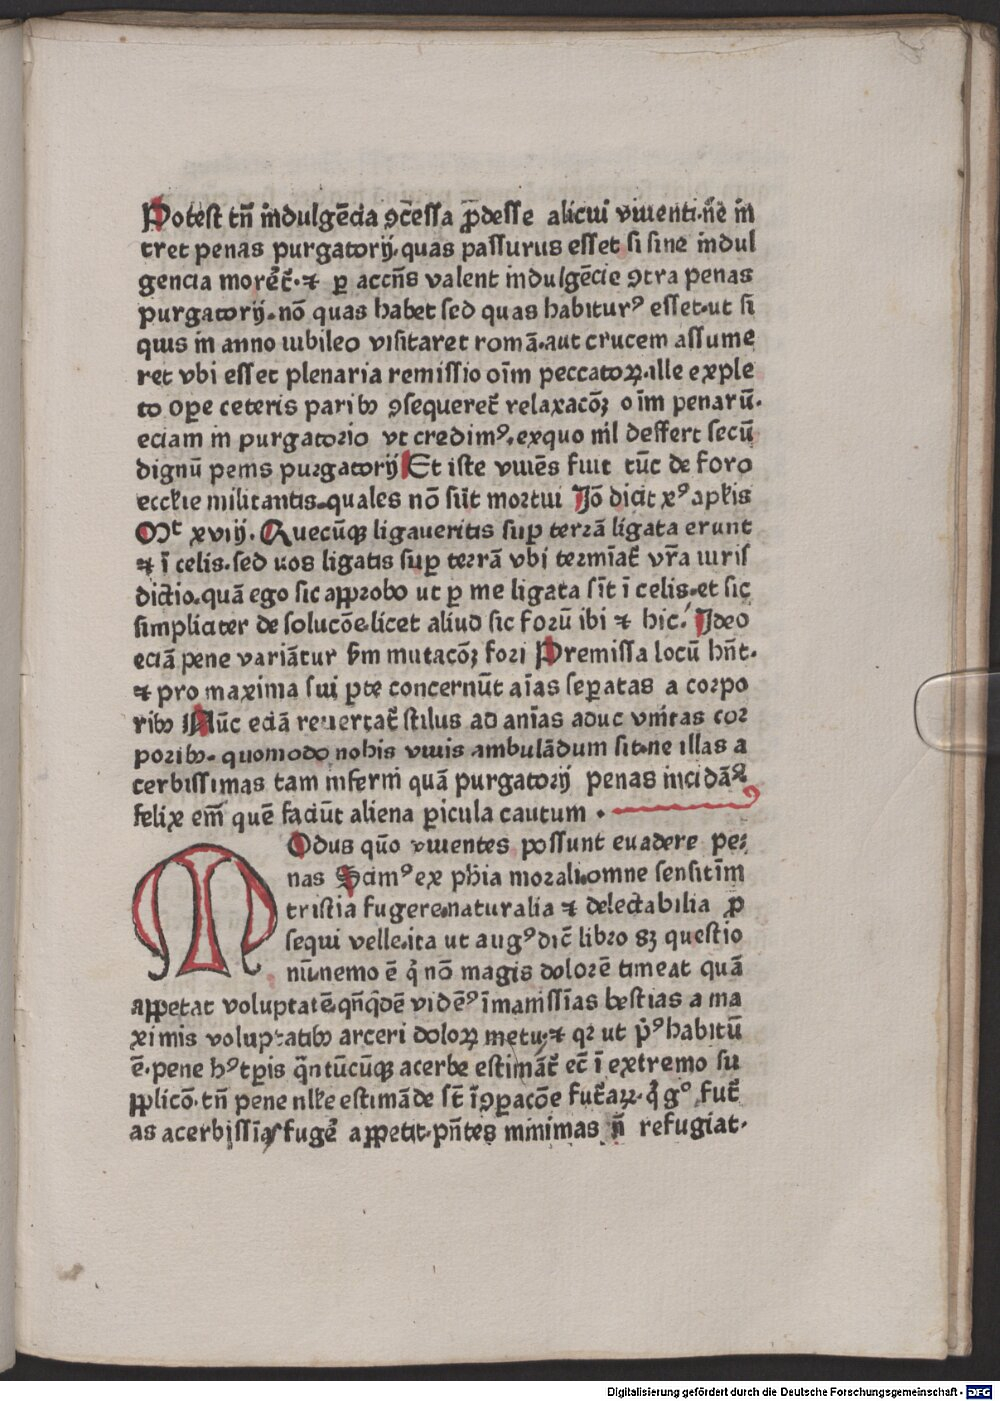 Potest tñ indulgēcia ꝯc̄essa ꝓdesse alicui viuenti·ne in
tret penas purgatorij·quas passurus esset si sine indul
gencia moreret̄·⁊ ꝑ accn̄s valent indulgēcie ꝯtra penas
purgatorij·nō quas habet sed quas habiturꝰ esset·ut si
quis in anno iubileo visitaret romā·aut crucem assume
ret vbi esset plenaria remissio oīm peccatoꝝ·ille exple
to oꝑe ceteris paribꝰ ꝯsequeret̄ relaxacōꝫ oīm penarū·
eciam in purgatorio vt credimꝰ·exquo nil deffert secū
dignū penis purgatorij Et iste viuēs fuit tūc de foro
eccľie militantis·quales nō sūt mortui Jō dicit xꝰ apľis
Mᵗ xviij· Quecūqꝫ ligaueritis suꝑ terrā ligata erunt
⁊ ī celis·sed uos ligatis suꝑ terrā vbi termīat̄ vr̄a iuris
dictio·quā ego sic approbo ut ꝑ me ligata sīt ī celis·et sic
simpliciter de solucōe·licet aliud sic forū ibi ⁊ hic· Jdeo
eciā pene variātur ẜm mutacōꝫ fori Premissa locū hn̄t·
⁊ pro maxima sui ꝑte concernūt aīas seꝑatas a corpo
ribꝰ Nūc eciā reuertat̄ stilus ad anīas aduc vnītas cor
poribꝰ· quomodo nobis viuis ambulādum sit·ne illas a
cerbissimas tam inferni quā purgatorij penas incidāꝰ
felix em̄ quē faciūt aliena ꝑicula cautum ·
Modus quō viuentes possunt euadere pe⸗
nas Scimꝰ ex ph̄ia morali·omne sensitīm
tristia fugere·naturalia ⁊ delectabilia ꝓ
sequi velle·ita ut augꝰ dic̄ libro 83 questio
nū·nemo ē q̇ nō magis dolorē timeat quā
appetat voluptatē·qn̄q̄dē vidēꝰ īmanissīas bestias a ma
ximis voluptatibꝰ arceri doloꝝ metu·⁊ qꝛ ut pꝰ habitū
ē·pene hꝰ tꝑis q̄ntūcūqꝫ acerbe estimāt̄ ec̄ ī extremo su
pplicō·tn̄ pene nľľe estimāde st̄ ī ꝯꝑacōe fut̄aꝝ·q̇ gᵒ fut̄
as acerbissīas fuge᷒ appetit·pn̄tes minimas n̄ refugiat·
Digitalisierung gefördert durch die Deutsche Forschungsgemeinschaft - DFG